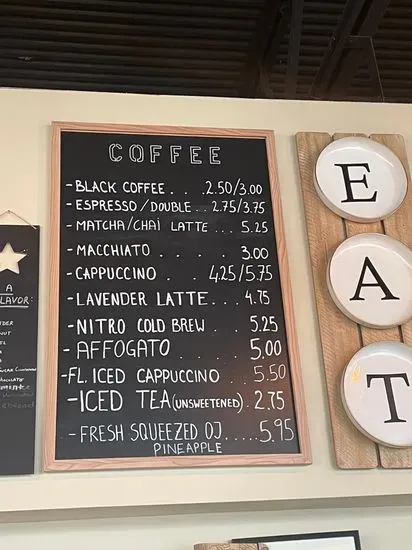 COFFEE
- BLACK COFFEE . . . 2.50/3.00
- ESPRESSO / DOUBLE . . 2.75/3.75
- MATCHA/CHAI LATTE . . . 5.25
- MACCHIATO . . . . 3.00
- CAPPUCCINO . . . 4.25/5.75
- LAVENDER LATTE . . . 4.75
- NITRO COLD BREW . . 5.25
- AFFOGATO . . . . 5.00
- FL. ICED CAPPUCCINO . . 5.50
- ICED TEA (UNSWEETENED) . 2.75
- FRESH SQUEEZED OJ ..... 5.95
PINEAPPLE
E
A
T
A